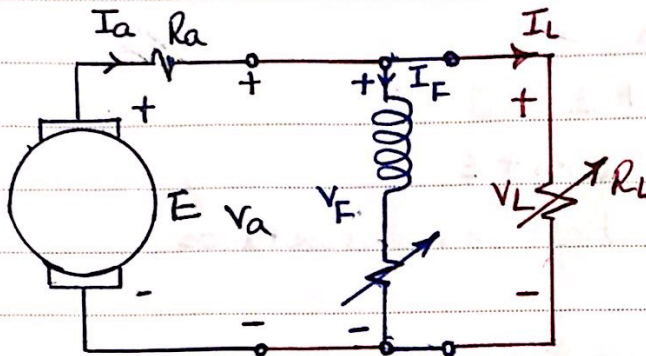 Ia Ra IL
+ + IF +
+
E Va VF VL RL
- - - -